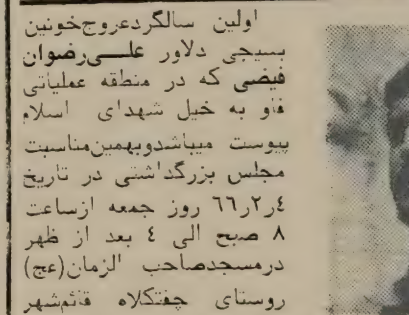 اولین سالگردعروج‌خونین
بسیجی دلاور علـــی‌رضوان
فیضی که در منطقه عملیاتی
فاو به خیل شهدای اسلام
پیوست میباشدوبهمین‌مناسبت
مجلس بزرگداشتی در تاریخ
٤ر٢ر٦٦ روز جمعه ازساعت
٨ صبح الی ٤ بعد از ظهر
درمسجدصاحب الزمان(عج)
روستای چفتکلاه قائم‌شهر